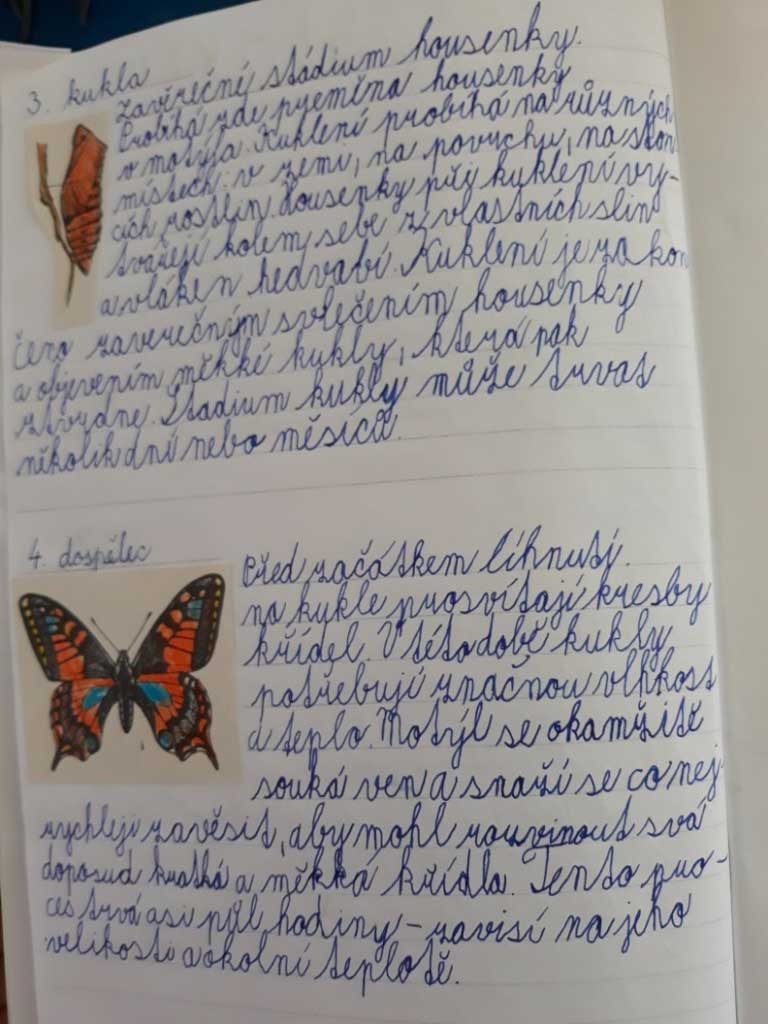 3. kukla
Závěrečné stádium housenky.
Probíhá zde přeměna housenky
v motýla. Kuklení probíhá na různých
místech: v zemi, na povrchu, na ston
cích rostlin. Housenky při kuklení vy-
tvářejí kolem sebe z vlastních slin
a vláken hedvábí. Kuklení je zakon
čeno závěrečným svlečením housenky
a objevením měkké kukly, která pak
ztvrdne. Stadium kukly může trvat
několik dní nebo měsíců.
4. dospělec
Před začátkem líhnutí
na kukle prosvítají kresby
křídel. V této době kukly
potřebují značnou vlhkost
a teplo. Motýl se okamžitě
souká ven a snaží se co nej-
rychleji zavěsit, aby mohl rozvinout svá
doposud krátká a měkká křídla. Tento pro-
ces trvá asi půl hodiny – zavisí na jeho
velikosti a okolní teplotě.